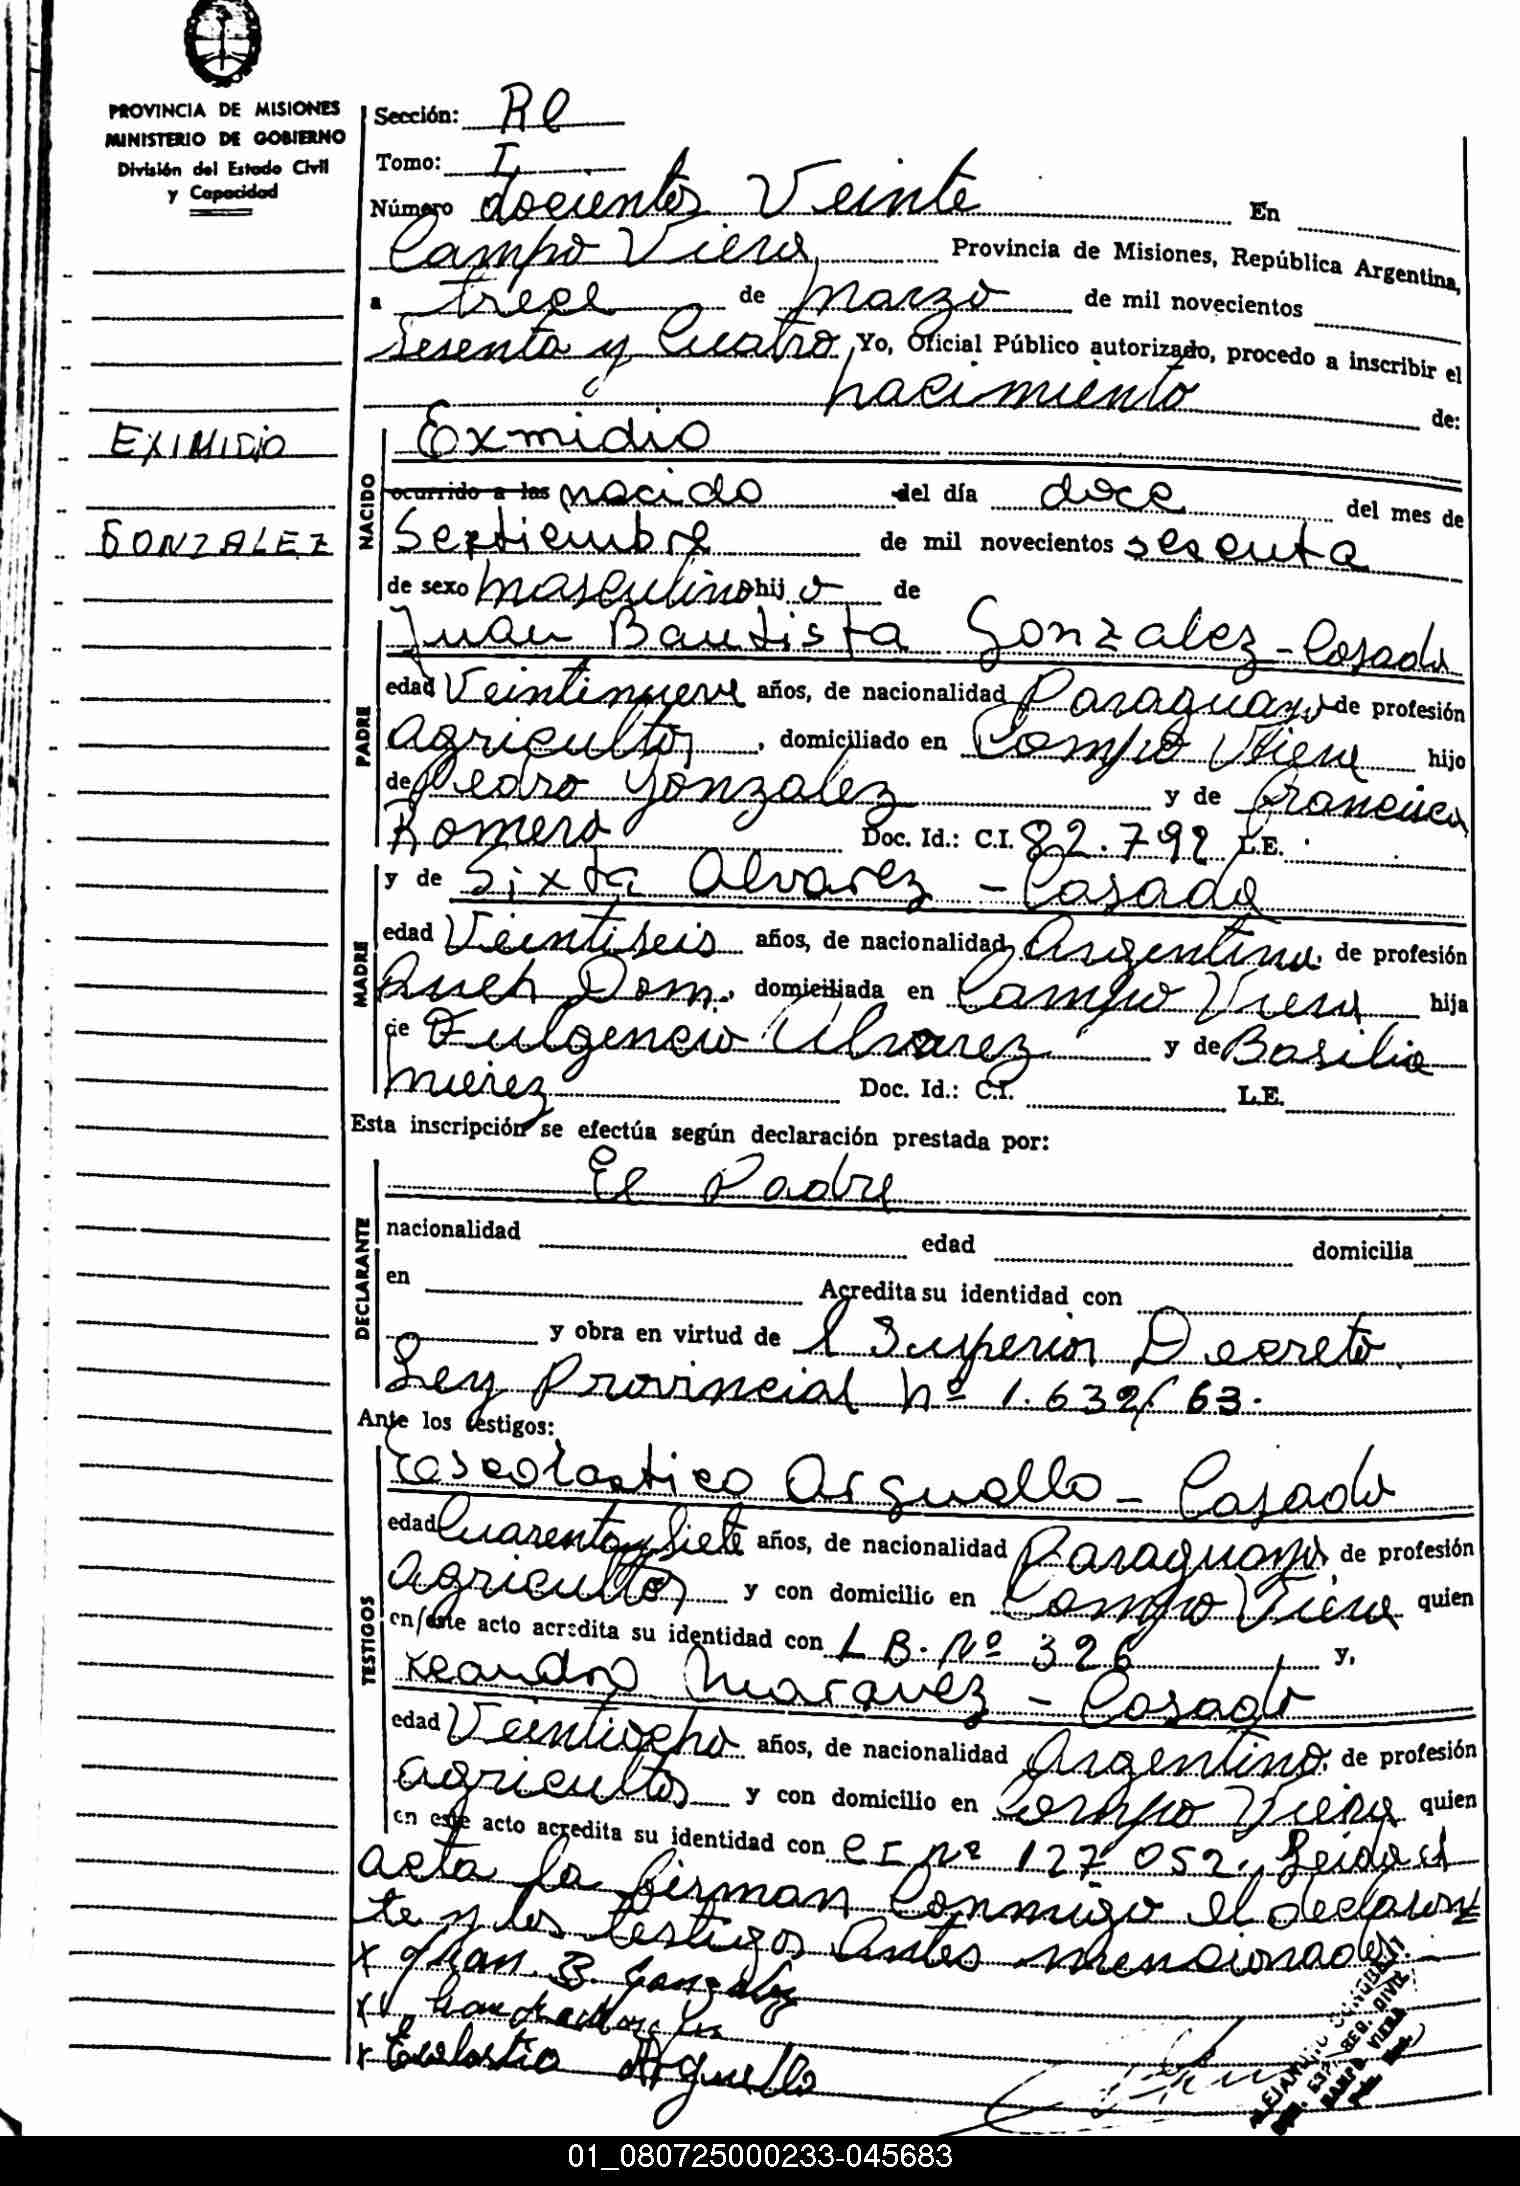 PROVINCIA DE MISIONES
MINISTERIO DE GOBIERNO
División del Estado Civil
y Capacidad
Sección: Re
Tomo: I
Número docientos Veinte En
Campo Viera, Provincia de Misiones, República Argentina,
a trece de Marzo de mil novecientos
Sesenta y Cuatro Yo, Oficial Público autorizado, procedo a inscribir el
nacimiento de:
EXIMIDIO
GONZALEZ
NACIDO
Exmidio
ocurrido a las nacido del día doce del mes de
Septiembre de mil novecientos sesenta
de sexo masculino hijo de
PADRE
Juan Bautista Gonzalez - Casado
edad Veintinueve años, de nacionalidad Paraguayo de profesión
agricultor, domiciliado en Campo Viera hijo
de Pedro Gonzalez y de Francisca
Romero Doc. Id.: C.I. 82.792 L.E.
MADRE
y de Sixta Alvarez - Casada
edad Veintiseis años, de nacionalidad Argentina, de profesión
Queh Dom., domiciliada en Campo Viera hija
de Fulgencio Alvarez y de Basilia
Doc. Id.: C.I. L.E.
Esta inscripción se efectúa según declaración prestada por:
DECLARANTE
El Padre
nacionalidad edad domicilia
en Acredita su identidad con
y obra en virtud de l Superior Decreto
Ley Provincial Nº 1.632/63.
Ante los testigos:
TESTIGOS
Escolastico Arguello - Casado
edad Cuarenta y Siete años, de nacionalidad Paraguayo de profesión
agricultor y con domicilio en Campo Viera quien
en este acto acredita su identidad con L B. Nº 326 y,
Leandro Maravez - Casado
edad Veintiocho años, de nacionalidad Argentino, de profesión
agricultor y con domicilio en Campo Viera quien
en este acto acredita su identidad con CI Nº 127 052. Leida el
acta la firman Conmigo el declaran
te y los testigos antes mencionados
x Juan B. Gonzalez
x Escolastico Arguello
CAMPO VIERA
01_080725000233-045683